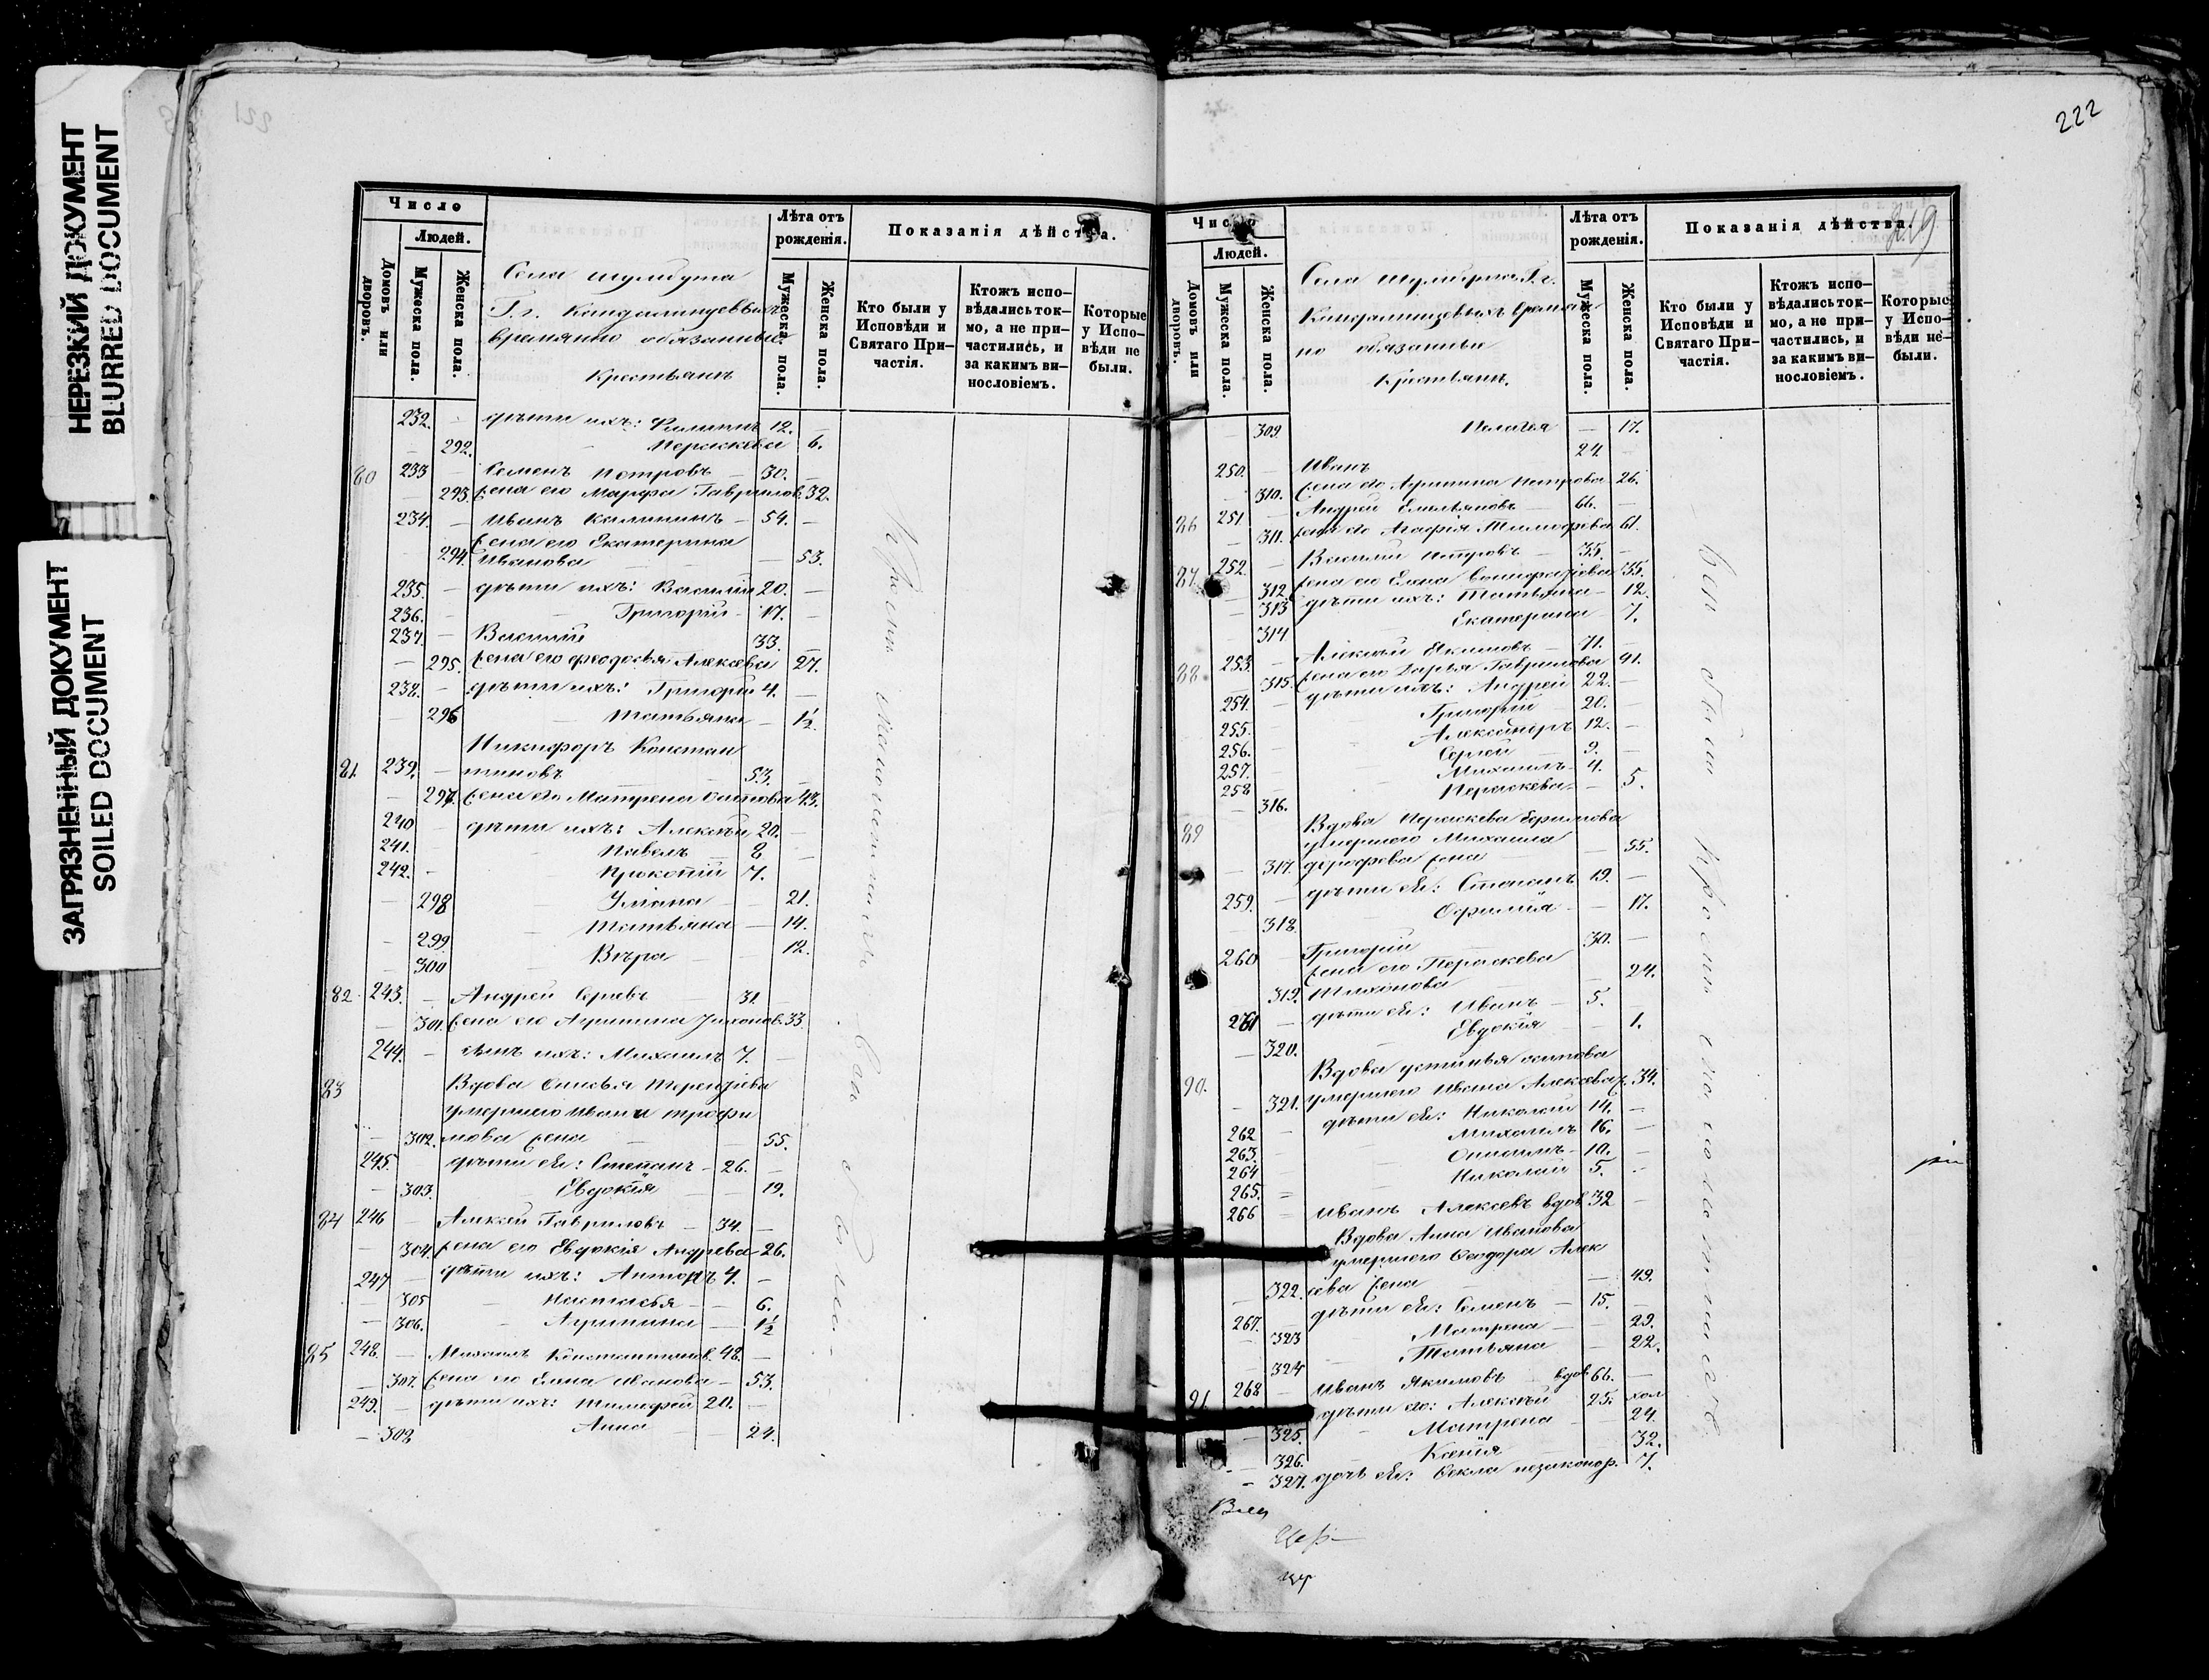 НЕРЕЗКИЙ ДОКУМЕНТ
BLURRED DOCUMENT
ЗАГРЯЗНЕННЫЙ ДОКУМЕНТ
SOILED DOCUMENT
221
Число
Людей.
Домовъ или дворовъ.
Мужеска пола.
Женска пола.
Села
Г.г.
временно обязанные
Крестьяне
Лѣта отъ рожденія.
Мужеска пола.
Женска пола.
Показанія дѣйства.
Кто были у Исповѣди и Святаго Причастія.
Ктожъ исповѣдались токмо, а не причастились, и за какимъ винословіемъ.
Которые у Исповѣди не были.
232. – дѣти ихъ: Филиппъ 12. –
– 292. – Пераскева 6.
80 233 – Семенъ Петровъ – 30. –
– 293. жена его Марфа Гаврилов. 32.
234. – Иванъ Калининъ – 54. –
жена его Екатерина
294. Иванова – 53.
235. – дѣти ихъ: Василій 20. –
236. – Григорій – 17. –
237. – Василій 33. –
– 295. жена его Феодосья Алексѣева 27.
238. – дѣти ихъ: Григорій 4. –
– 296 – Татьяна – 1½
Никифоръ Констан
81. 239. – тиновъ 53. –
– 297. жена его Матрена Осипова 43.
240 – дѣти ихъ: Алексѣй 20. –
241. – Павелъ 8 –
242. – Прокопій 7.
– 298 Уліана – 21.
– 299 – Татьяна – 14.
– 300 – Вѣра – 12.
82 243. – Андрей Сергѣевъ 31 –
– 301. жена его Агрипина 33.
244. – сынъ ихъ: Михаилъ 7. –
83 Вдова Терентіева
умершаго Ивана Трофи
– 302. мова жена – 55.
245. дѣти ея: Степанъ – 26. –
– 303. Евдокія – 19.
84 246 – Алексѣй Гавриловъ – 34. –
– 304. жена его Евдокія Андреева – 26.
247 – дѣти ихъ: Антонъ 4. –
– 305 – Настасья – 6.
– 306. – Агрипина – 1½
85 248. – Михаилъ Константинов. 48. –
– 307. жена его Елена Иванова – 53.
249. – дѣти ихъ: Тимофей 20. –
– 308 Анна – 24.
222
219
Число
Людей.
Домовъ или дворовъ.
Мужеска пола.
Женска пола.
Села Г.г.
времен
но обязанные
Крестьяне.
Лѣта отъ рожденія.
Мужеска пола.
Женска пола.
Показанія дѣйства.
Кто были у Исповѣди и Святаго Причастія.
Ктожъ исповѣдались токмо, а не причастились, и за какимъ винословіемъ.
Которые у Исповѣди небыли.
– 309. Пелагея – 17.
250. – Иванъ 24. –
– 310. жена его Агрипина Петрова 26.
86 251 – Андрей Емельяновъ – 66. –
– 311. жена его Агафія Тимофеева 61.
87. 252 – Василій Петровъ – 35. –
– 312. жена его Елена 35.
– 313 дѣти ихъ: Татьяна – 12.
314 Екатерина – 7.
88. 253 – Алексѣй Якимовъ – 71. –
– 315. жена его Дарья Гаврилова 41.
254. – дѣти ихъ: Андрей 22. –
255. – Григорій – 20. –
256. – Александръ 12. –
257. – Сергѣй – 9. –
258 – Михаилъ – 4.
– 316. Пераскева – 5.
89 Вдова Пераскева
умершаго Михаила
– 317. жена – 55.
259. – дѣти ея: Степанъ 19. –
– 318 Офимія – – 17.
260 Григорій 30. –
жена его Пераскева
319. Тихонова – 24.
261 – дѣти ея: Иванъ – 5. –
– 320. Евдокія – 1.
90. Вдова Устинья Осипова
– 321. умершаго Ивана Алексѣева ж. 34.
262 – дѣти ея: Николай 14. –
263. – Михаилъ 16. –
264 – 10. –
265. – Николай 5. –
266 – Иванъ Алексѣевъ вдов. 32 –
Вдова Анна Иванова
умершаго Феодора Алек
– 322. сѣева жена – 49.
267. – дѣти ея: Семенъ – 15. –
– 323 Матрена – 29.
– 324 Татьяна – 22.
91. 268 – Иванъ Якимовъ – вдов. 66. –
дѣти его: Алексѣй 25. хол
– 325. Матрена – 24.
– 326. Ксенія 32.
– 327. дочь ея: Фекла незаконор. 7.